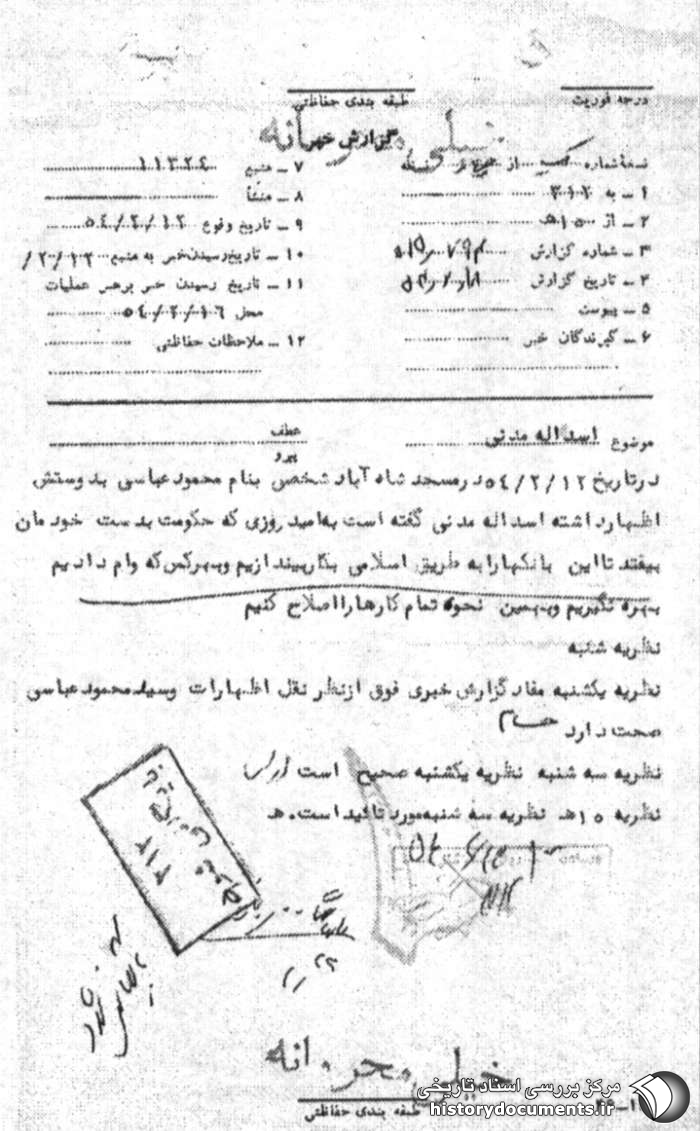 درجه فوریت
طبقه بندی حفاظتی
خیلی محرمانه
گزارش خبر
نسخه شماره از نسخه
۱ - به ۳۱۲
۲ - از ۱۵ هـ
۳ - شماره گزارش
۴ - تاریخ گزارش
۵ - پیوست
۶ - گیرندگان خبر
۷ - منبع ۱۱۳۲۴
۸ - منشأ
۹ - تاریخ وقوع ۵۴/۲/۱۲
۱۰ - تاریخ رسیدن خبر به منبع ۲۰/۱۲/
۱۱ - تاریخ رسیدن خبر برهبر عملیات
محل ۵۴/۲/۱۶
۱۲ - ملاحظات حفاظتی
موضوع اسداله مدنی
عطف
پیرو
درتاریخ ۵۴/۲/۱۲ درمسجد شاه آباد شخصی بنام محمود عباسی بدوستش
اظهارداشته اسداله مدنی گفته است به امید روزی که حکومت بدست خودمان
بیفتد تا این بانکها را به طریق اسلامی بکاربیندازیم و بهرکس که وام دادیم
بهره نگیریم و بهمین نحوه تمام کارها را اصلاح کنیم
نظریه شنبه
نظریه یکشنبه مفاد گزارش خبری فوق ازنظر نقل اظهارات وسید محمود عباسی
صحت دارد حسام
نظریه سه شنبه نظریه یکشنبه صحیح است
نظریه ۱۵ هـ نظریه سه شنبه مورد تائید است. هـ
۳۱۲
خیلی محرمانه
طبقه بندی حفاظتی
مرکز بررسی اسناد تاریخی
historydocuments.ir